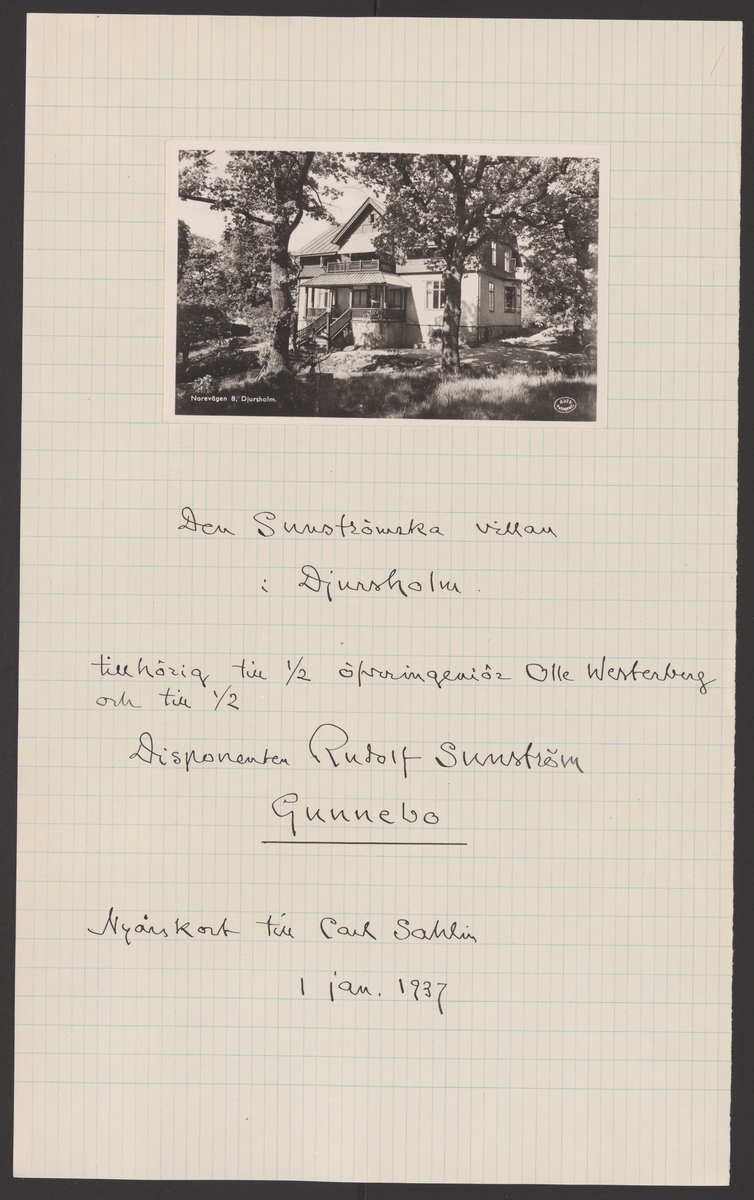 Norevägen 8, Djursholm.
Den Sunströmska villan
i Djursholm.
tillhörig till 1/2 öfveringeniör Olle Westerberg
och till 1/2
Disponenten Rudolf Sunström
Gunnebo
Nyårskort till Carl Sahlin
1 jan. 1937